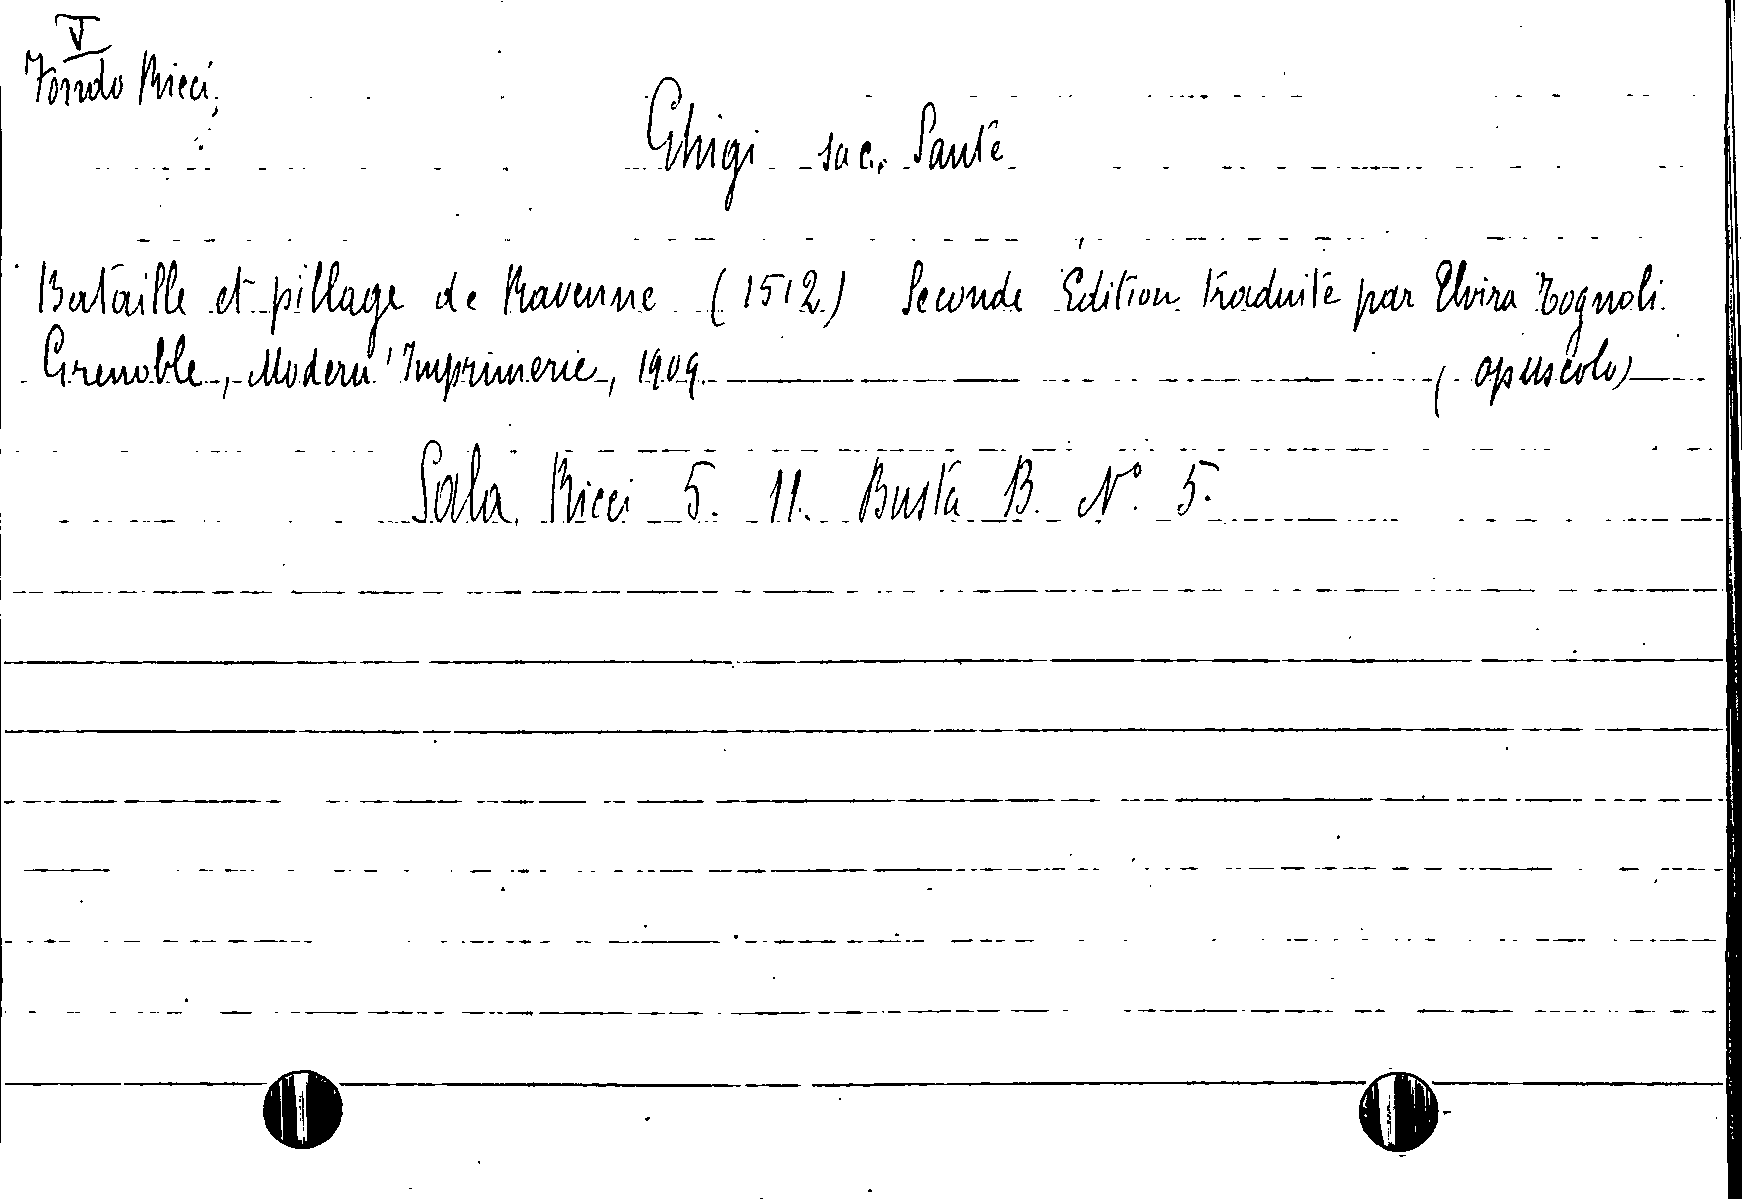 V
Fondo Ricci,
Ghigi sac. Sante
Bataille et pillage de Ravenne (1512) Seconde Édition traduite par Elvira Tognoli.
Grenoble, Modern' Imprimerie, 1909. (opuscolo)
Sala Ricci 5. 11. Busta B. N° 5.